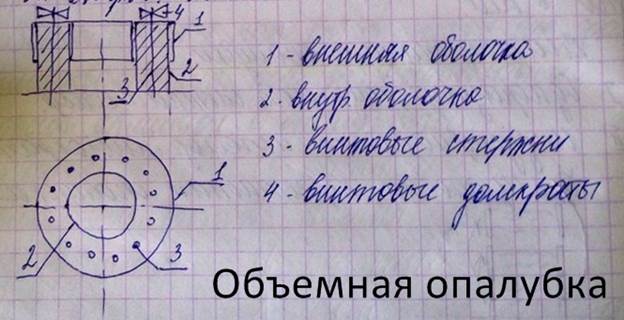 4
1
2
3
1 - внешняя оболочка
2 - внутр оболочка
3 - винтовые стержни
4 - винтовые домкраты
1
2
3
Объемная опалубка